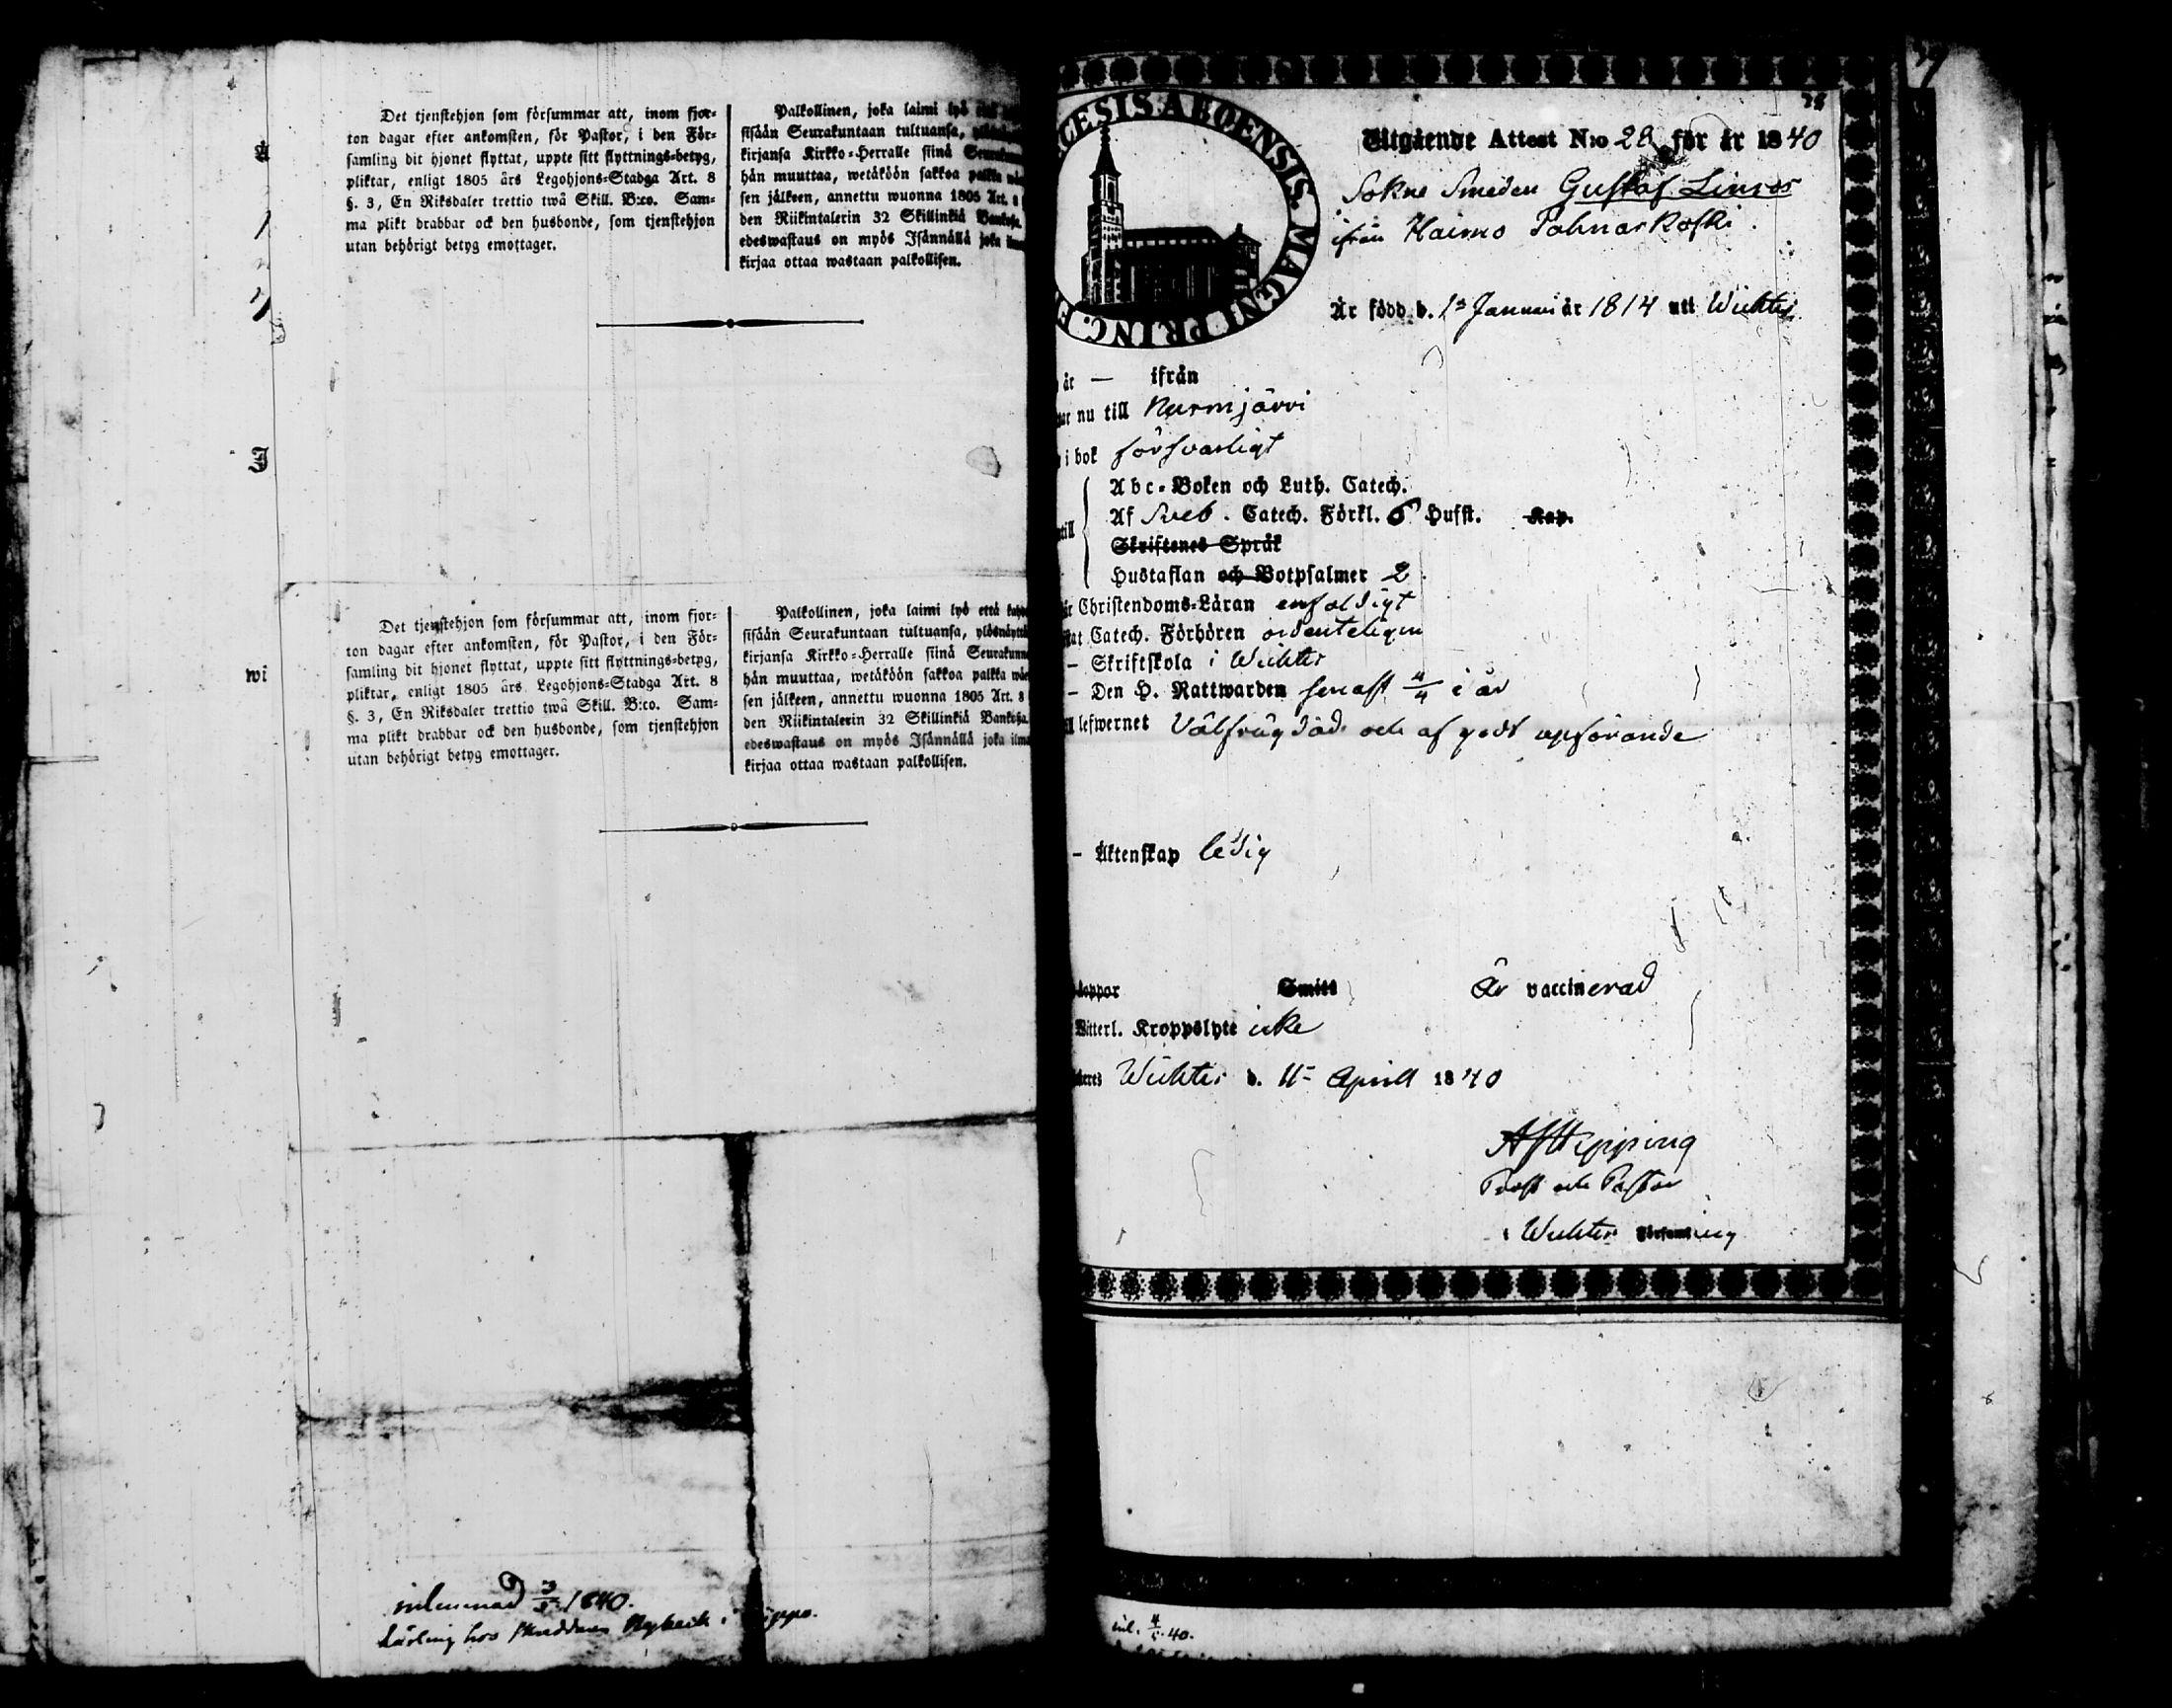 Det tjenstehjon som försummar att, inom fjor-
ton dagar efter ankomsten, för Pastor, i den För-
samling dit hjonet flyttat, uppte sitt flyttnings-betyg,
pliktar, enligt 1805 års Legohjons-Stadga Art. 8
§. 3, En Riksdaler trettio twå Skill. B:co. Sam-
ma plikt drabbar ock den husbonde, som tjenstehjon
utan behörigt betyg emottager.
Palkollinen, joka laimi lyö
sisään Seurakuntaan tultuansa,
kirjansa Kirkko-Herralle siinä
hän muuttaa, wetäköön sakkoa palkka
sen jälkeen, annettu wuonna 1805 Art. 8
den Riikintalerin 32 Skillinkiä
edeswastaus on myös Isännällä joka
kirjaa ottaa wastaan palkollisen.
wi
Det tjenstehjon som försummar att, inom fjor-
ton dagar efter ankomsten, för Pastor, i den För-
samling dit hjonet flyttat, uppte sitt flyttnings-betyg,
pliktar, enligt 1805 års Legohjons-Stadga Art. 8
§. 3, En Riksdaler trettio twå Skill. B:co. Sam-
ma plikt drabbar ock den husbonde, som tjenstehjon
utan behörigt betyg emottager.
Palkollinen, joka laimi lyö että
sisään Seurakuntaan tultuansa,
kirjansa Kirkko-Herralle siinä
hän muuttaa, wetäköön sakkoa palkka
sen jälkeen, annettu wuonna 1805 Art. 8
den Riikintalerin 32 Skillinkiä
edeswastaus on myös Isännällä joka
kirjaa ottaa wastaan palkollisen.
inlemnad 3/5 1840.
Lärling hos
ABOENSIS. MAGNI PRINC.
Utgående Attest N:o 28 för år 1840
Sokne Smeden Gustaf Linros
ifrån Haimo
Är född d. 1a Januari år 1814 uti Wichtis
år — ifrån
nu till Nurmjärvi
i bok försvarligt
Abc-Boken och Luth. Catech.
Af Sveb. Catech. Förkl. 6 Husst. Kap.
Skriftenes Språk
Hustaflan och Botpsalmer 2
Christendoms-Läran enfaldigt
Catech. Förhören ordenteligen
– Skriftskola i Wichtis
– Den H. Nattwarden senast 4/4 i år
lefwernet Välfrägdad och af godt uppförande
– Äktenskap ledig
Är vaccinerad
Witterl. Kroppslyte icke
Wichtis d. 11= Aprill 1840
Hipping
Prost och Pastor
i Wichtis Församling
inl. 4/5 40.